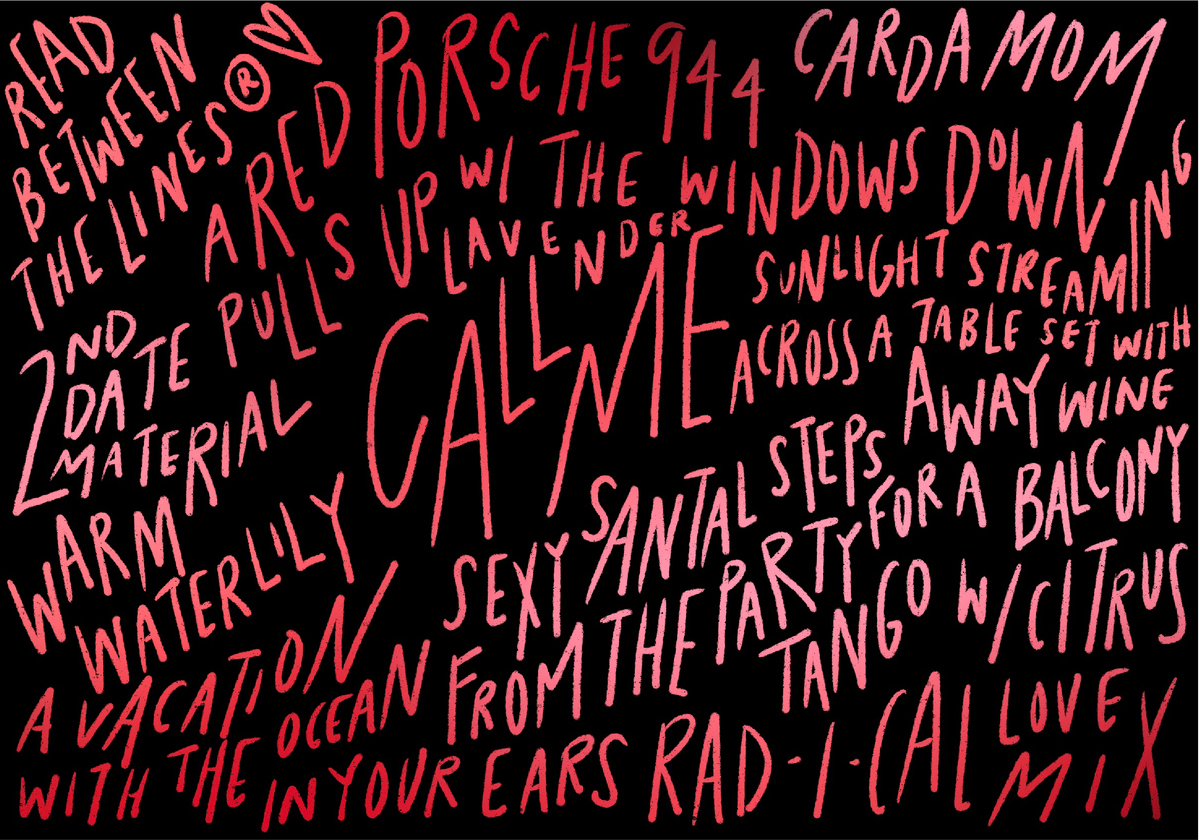 READ
BETWEEN
THE LINES®
A RED PORSCHE 944
PULLS UP W/ THE WINDOWS DOWN
CARDAMOM
LAVENDER
CALL ME
SUNLIGHT STREAMING
ACROSS A TABLE SET WITH
WINE
2ND
DATE
MATERIAL
WARM
WATERLILY
SEXY SANTAL STEPS AWAY
FROM THE PARTY FOR A BALCONY
TANGO W/ CITRUS
A VACATION
WITH THE OCEAN
IN YOUR EARS
RAD·I·CAL LOVE
MIX